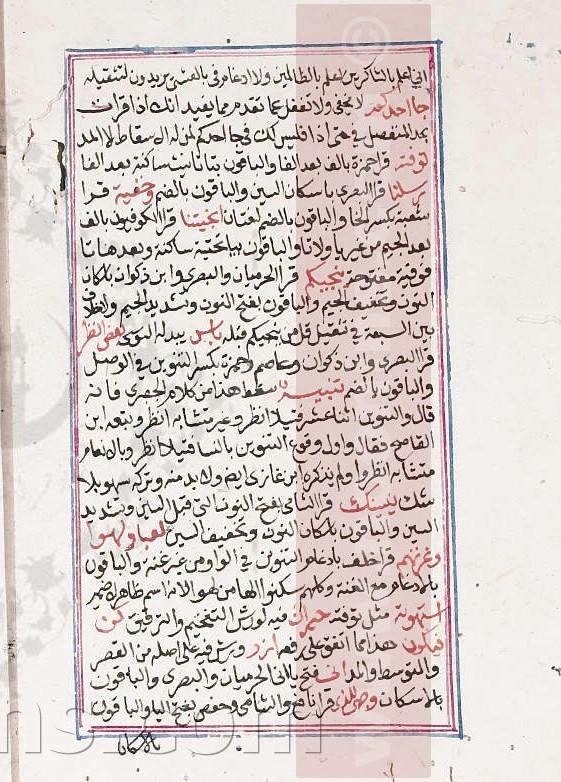 اني أعلم بالشاكرين أعلم بالظالمين ولا ادغام في بالعشي يريدون لتثقيله
جاء أحدكم لا يخفى ولا تغفل عما تقدم مما يفيد انك اذا قرات
بمد المنفصل في حتى اذا فليس لك في جا احدكم لمن له الاسقاط الا المد
توفته قرا حمزة بالف بعد الفا والباقون بتا تانيث ساكنة بعد الفا
رسلنا قرا البصري باسكان السين والباقون بالضم وخفية قرا
شعبة بكسر الخا والباقون بالضم لغتان انجيتنا قرا الكوفيون بالف
بعد الجيم من غير يا ولا تا والباقون بيا تحتية ساكنة وبعدها تا
فوقية مفتوحة ينجيكم قرا الحرميان والبصري وابن ذكوان باسكان
النون وتخفيف الجيم والباقون بفتح النون وتشديد الجيم ولا خلاف
بين السبعة في تثقيل قل من ينجيكم قبله باس يبدله السوسي بعض انظر
قرا البصري وابن ذكوان وعاصم وحمزة بكسر التنوين في الوصل
والباقون بالضم تنبيه سقط هذا من كلام الجعبري فانه
قال والتنوين اثنا عشر فتيلا انظر وغير متشابه انظروا وتبعه ابن
القاصح فقال واول وقوع التنوين بالنسا فتيلا انظر وبالانعام
متشابه انظروا ولم يذكره ابن غازي ايضا ولا بد منه وتركه سهو بلا
شك ينسينك قرا الشامي بفتح النون التي قبل السين وتشديد
السين والباقون باسكان النون وتخفيف السين لعبا ولهوا
وغرتهم قرا خلف بادغام التنوين في الواو من غير غنة والباقون
بالادغام مع الغنة وكلهم سكنوا الها من لهو لانه اسم ظاهر لا ضمير
استهوته مثل توفته حيران فيه لورش التفخيم والترقيق كن
فيكون هذا مما اتفق على رفعه ازر ورش فيه على اصله من القصر
والتوسط والمد اني فتح يا اني الحرميان والبصري والباقون
بالاسكان وجهي للذي قرا نافع والشامي وحفص بفتح اليا والباقون
بالاسكان